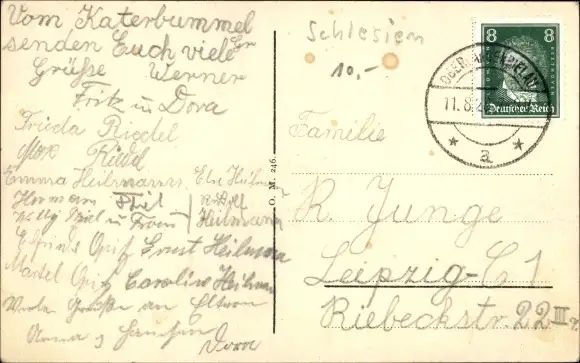 Vom Katerbummel
senden Euch viele
Grüße Werner
Fritz u Dora
Frieda Riedel
Riedel
Emma Heilmann Else Heilmann
Hermann
Willy u Frau Heilmann
Opitz Ernst Heilmann
Martel Opitz Caroline Heilman
Viele Grüße an Eltern
Dora
O. M. 246.
Schlesien
10,-
8 8
Deutsches Reich
11.8.
a
Familie
R. Junge
Leipzig-C1
Riebeckstr. 22 III